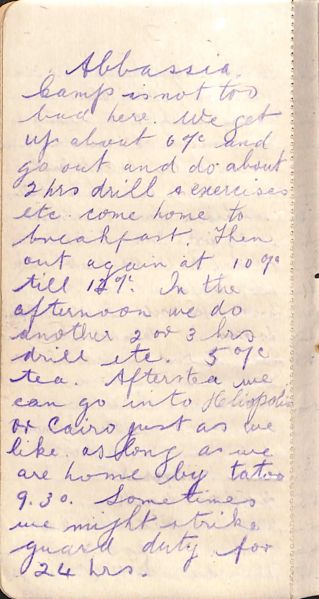 Abbassia.
Camp is not too
bad here. We get
up about 6 o/c and
go out and do about
2 hrs drill & exercises
etc. come home to
breakfast. Then
out again at 10 o/c
till 12 o/c. In the
afternoon we do
another 2 or 3 hrs
drill etc. 5 o/c
tea. After tea we
can go into Heliopolis
or Cairo just as we
like as long as we
are home by tatoo
9.30. Sometimes
we might strike
guard duty for
24 hrs.